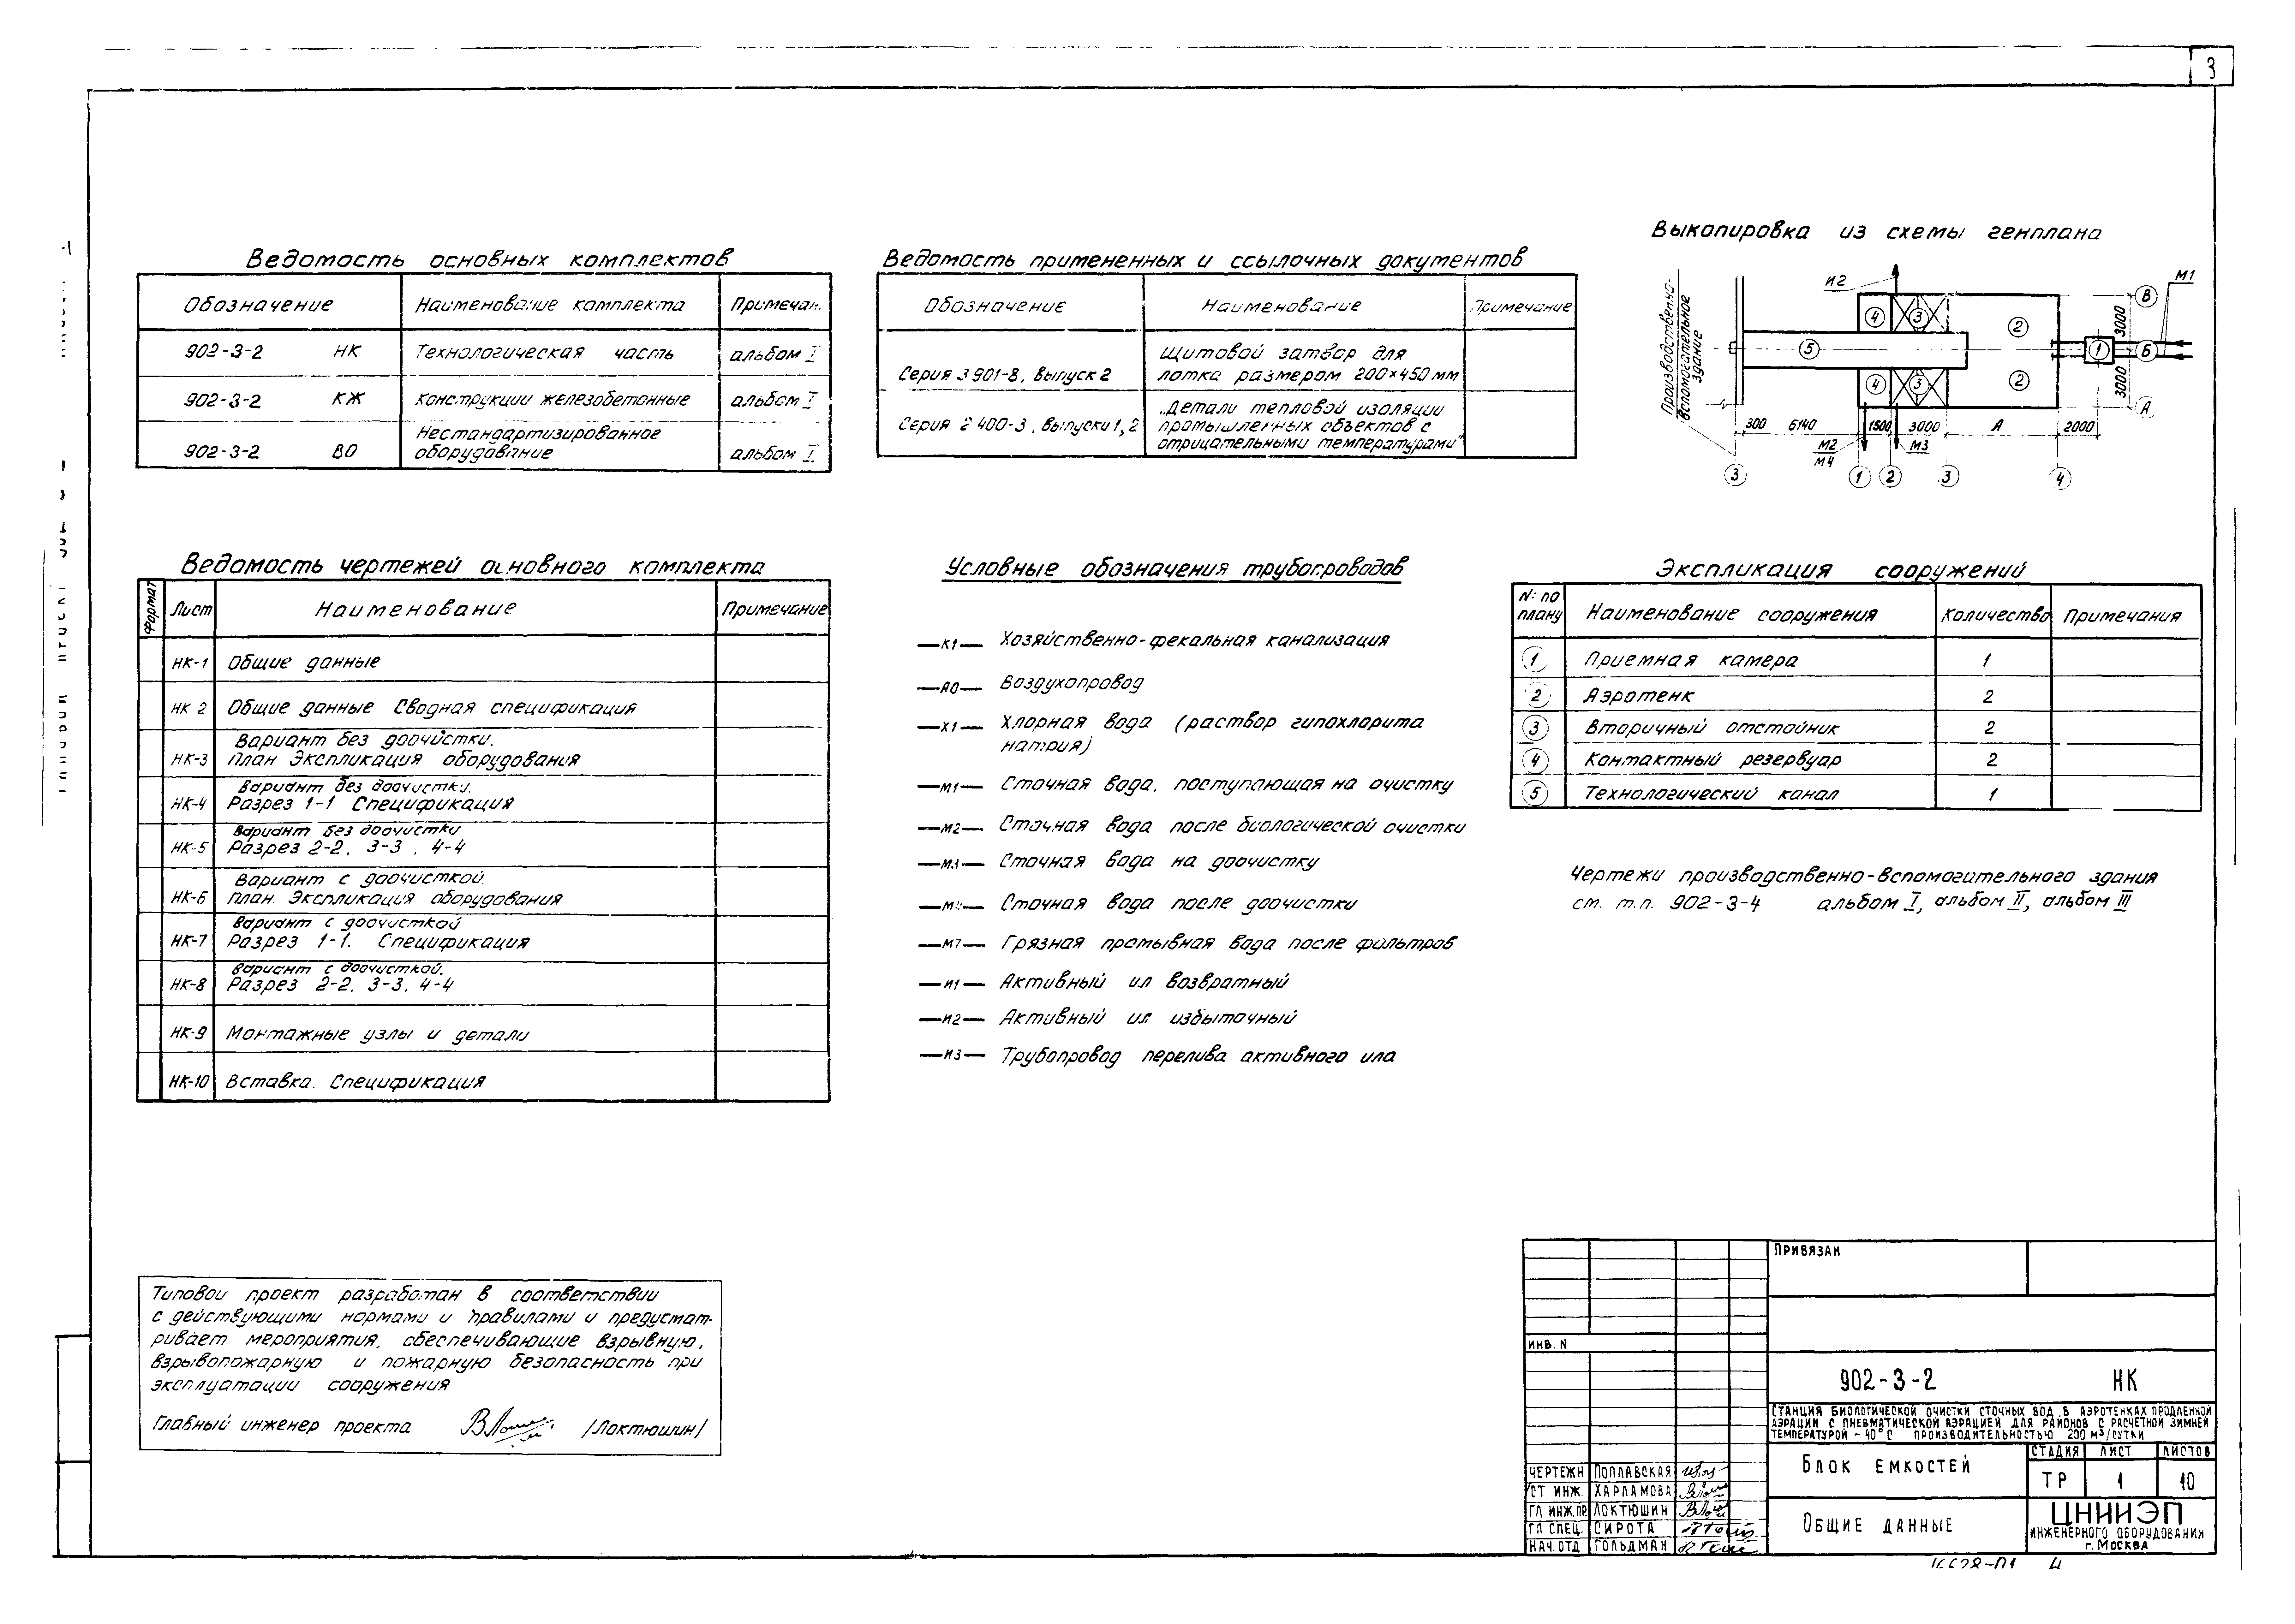 3
Ведомость основных комплектов
Обозначение Наименование комплекта Примечан.
902-3-2 НК Технологическая часть альбом I
902-3-2 КЖ Конструкции железобетонные альбом I
902-3-2 ВО Нестандартизированное
оборудование альбом I
Ведомость примененных и ссылочных документов
Обозначение Наименование Примечание
Серия 3 901-8, выпуск 2 Щитовой затвор для
лотка размером 200×450 мм
Серия 2 400-3, выпуски 1, 2 „Детали тепловой изоляции
промышленных объектов с
отрицательными температурами"
Выкопировка из схемы генплана
Производственно-
вспомогательное
здание
И2
М1
4 3 2
5 1
4 3 2
В
Б
А
3000
3000
300 6140 1500 3000 А 2000
М2
М4
М3
3 1 2 3 4
Ведомость чертежей основного комплекта
Формат Лист Наименование Примечание
НК-1 Общие данные
НК 2 Общие данные Сводная спецификация
Вариант без доочистки.
НК-3 План Экспликация оборудования
Вариант без доочистки.
НК-4 Разрез 1-1 Спецификация
Вариант без доочистки
НК-5 Разрез 2-2, 3-3, 4-4
Вариант с доочисткой.
НК-6 План. Экспликация оборудования
Вариант с доочисткой
НК-7 Разрез 1-1. Спецификация
Вариант с доочисткой.
НК-8 Разрез 2-2. 3-3. 4-4
НК-9 Монтажные узлы и детали
НК-10 Вставка. Спецификация
Условные обозначения трубопроводов
—К1— Хозяйственно-фекальная канализация
—А0— Воздухопровод
—Х1— Хлорная вода (раствор гипохлорита
натрия)
—М1— Сточная вода, поступающая на очистку
—М2— Сточная вода после биологической очистки
—М3— Сточная вода на доочистку
Сточная вода после доочистки
—М7— Грязная промывная вода после фильтров
—И1— Активный ил возвратный
—И2— Активный ил избыточный
—И3— Трубопровод перелива активного ила
Экспликация сооружений
N: по
плану Наименование сооружения Количество Примечания
1 Приемная камера 1
2 Аэротенк 2
3 Вторичный отстойник 2
4 Контактный резервуар 2
5 Технологический канал 1
Чертежи производственно-вспомогательного здания
см. т.п. 902-3-4 альбом I, альбом II, альбом III
Типовой проект разработан в соответствии
с действующими нормами и правилами и предусмат-
ривает мероприятия, обеспечивающие взрывную,
взрывопожарную и пожарную безопасность при
эксплуатации сооружения
Главный инженер проекта /Локтюшин/
ПРИВЯЗАН
ИНВ. N
902-3-2 НК
СТАНЦИЯ БИОЛОГИЧЕСКОЙ ОЧИСТКИ СТОЧНЫХ ВОД В АЭРОТЕНКАХ ПРОДЛЕННОЙ
АЭРАЦИИ С ПНЕВМАТИЧЕСКОЙ АЭРАЦИЕЙ ДЛЯ РАЙОНОВ С РАСЧЕТНОЙ ЗИМНЕЙ
ТЕМПЕРАТУРОЙ -40°С ПРОИЗВОДИТЕЛЬНОСТЬЮ 200 м3/СУТКИ
БЛОК ЕМКОСТЕЙ
СТАДИЯ ЛИСТ ЛИСТОВ
ТР 1 10
ЧЕРТЕЖН ПОПЛАВСКАЯ
СТ ИНЖ. ХАРЛАМОВА
ГЛ ИНЖ.ПР. ЛОКТЮШИН
ГЛ СПЕЦ. СИРОТА
НАЧ.ОТД ГОЛЬДМАН
ОБЩИЕ ДАННЫЕ
ЦНИИЭП
ИНЖЕНЕРНОГО ОБОРУДОВАНИЯ
г. МОСКВА
4